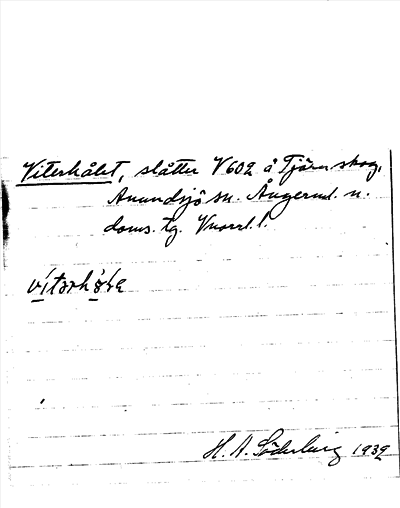 Viterhålet, slåtter V602 å Tjärn skog,
Anundsjö sn. Ångerml. n.
doms. tg. Vnorrl. l.
H. A. Söderberg 1939